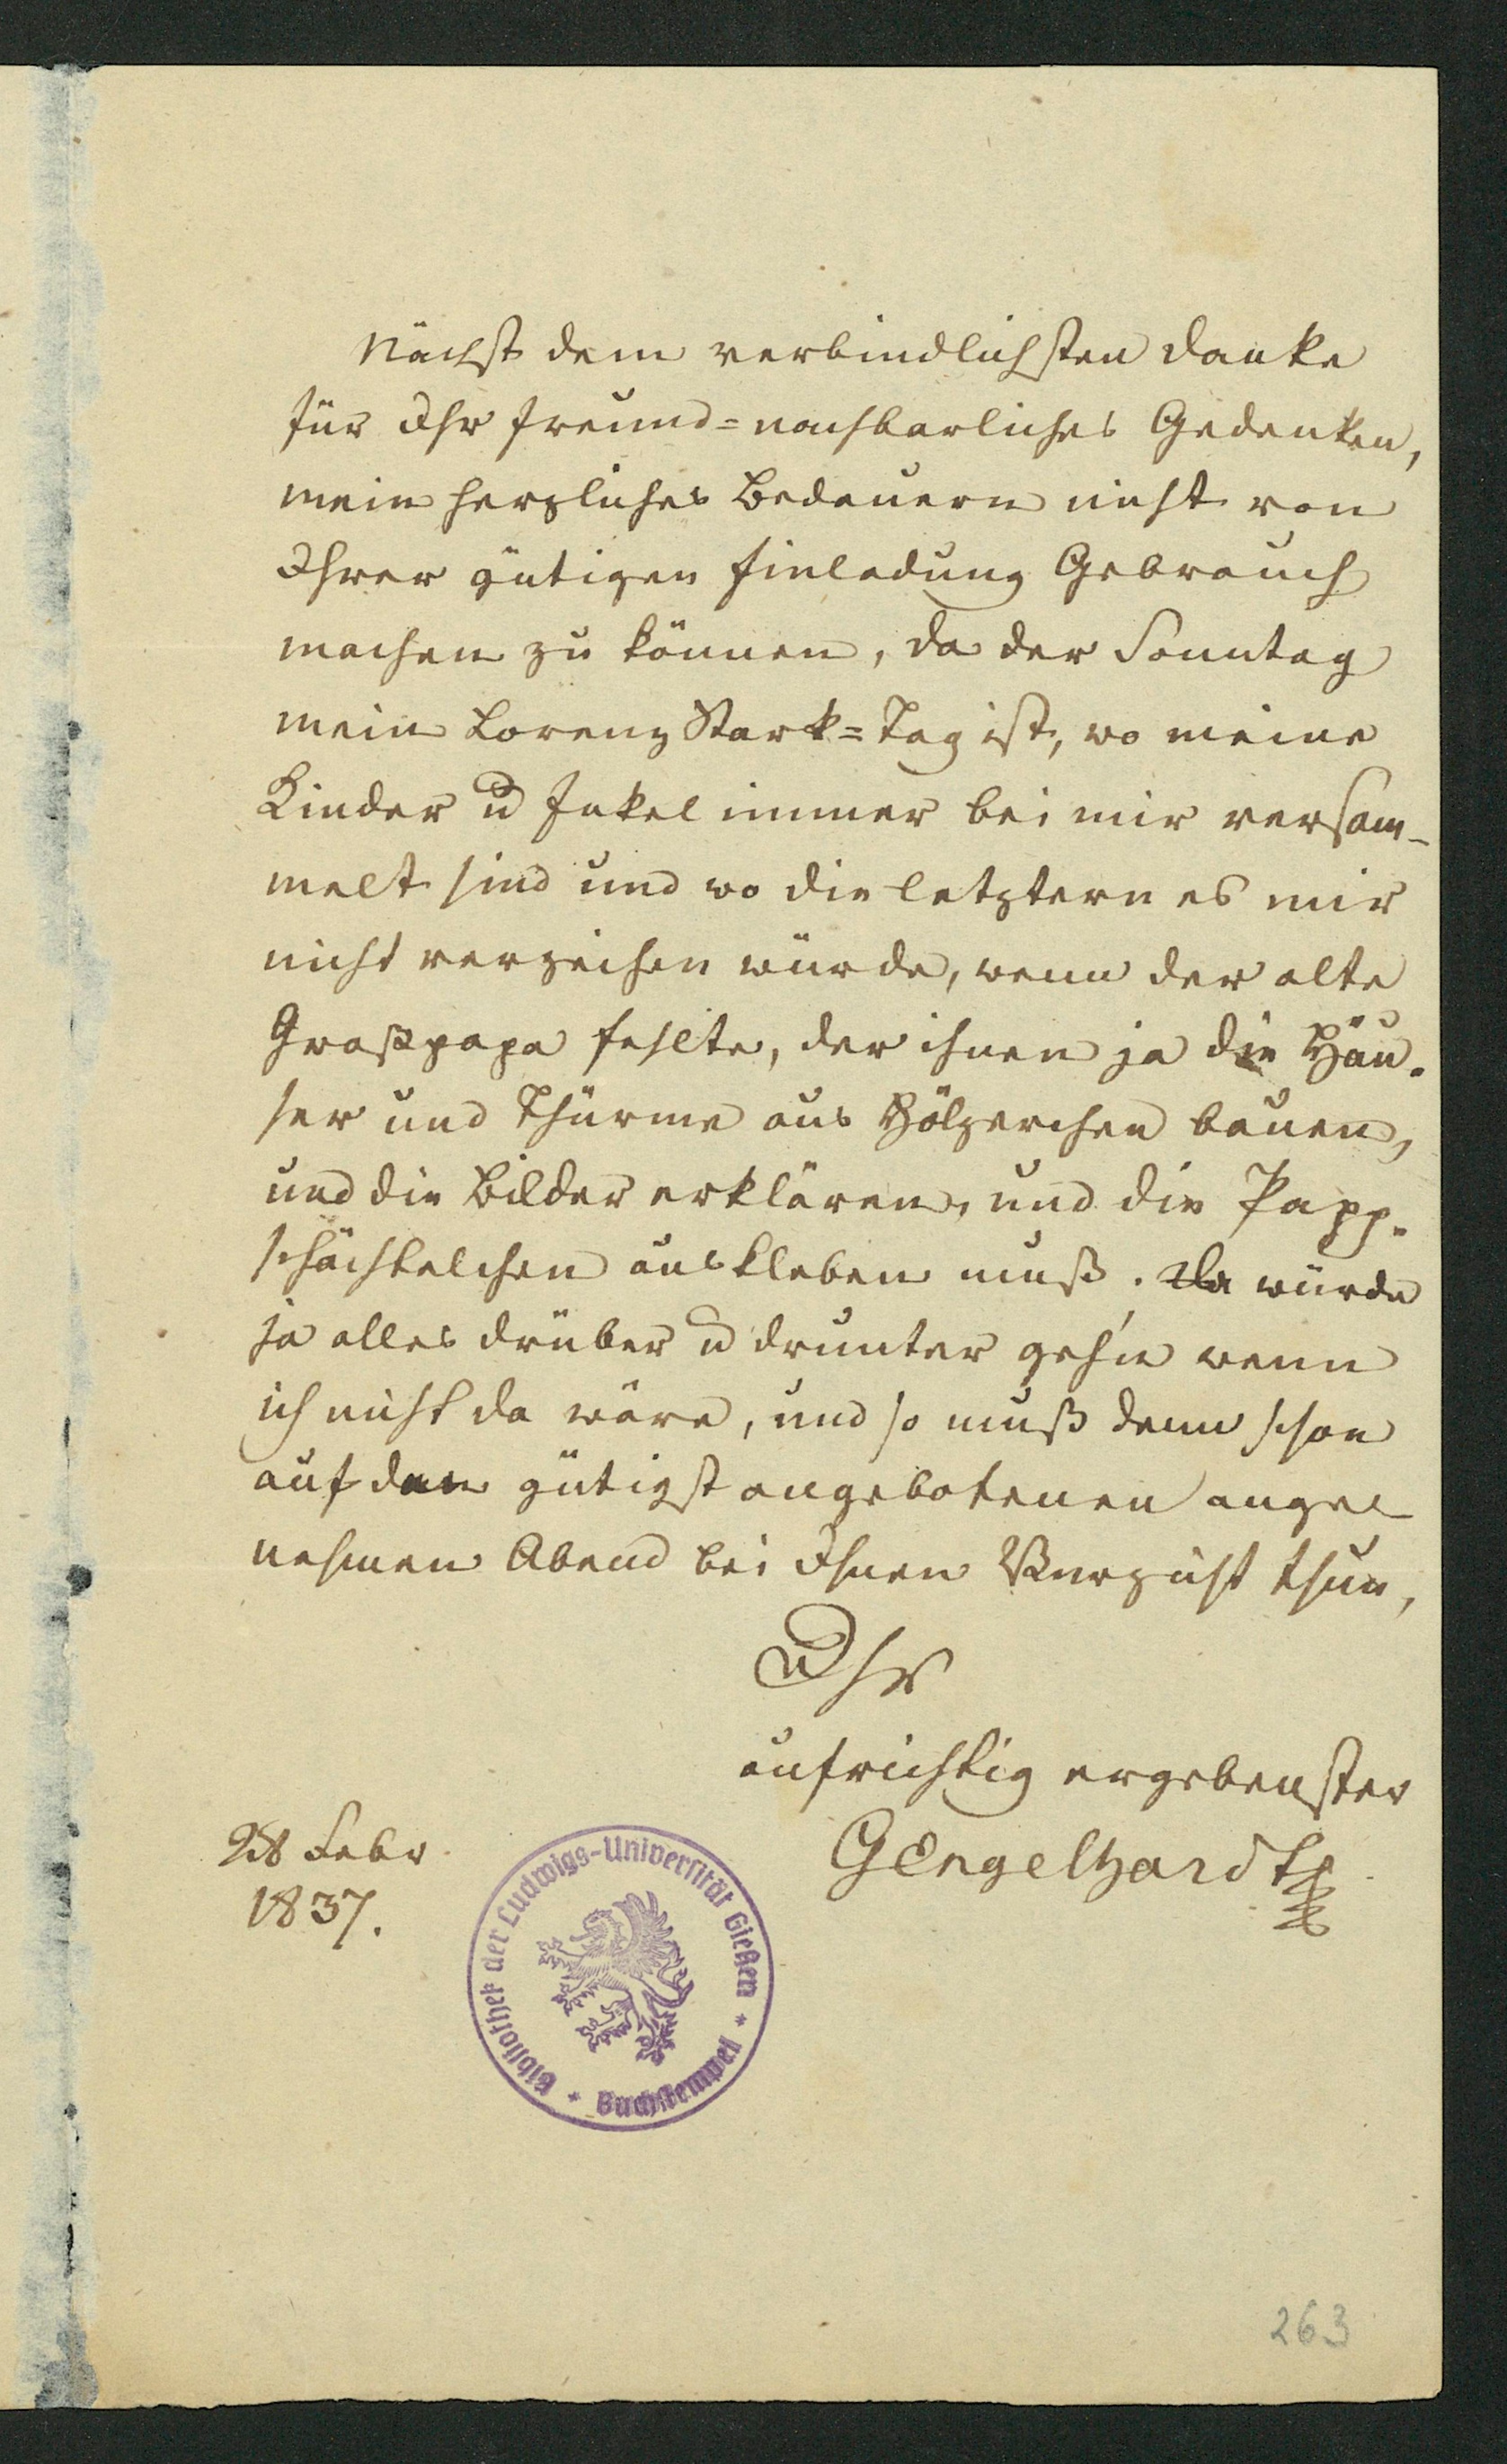 Nächst dem verbindlichsten Danke
für Ihr freund=nachbarliches Gedenken,
mein herzliches Bedauern nicht von
Ihrer gütigen Einladung Gebrauch
machen zu können, da der Sonntag
mein Lorenz Stark=Tag ist, wo meine
Kinder u Enkel immer bei mir versam-
melt sind und wo die letztern es mir
nicht verzeihen würde, wenn der alte
Großpapa fehlte, der ihnen ja die Häu-
ser und Thürme aus Hölzerchen bauen,
und die Bilder erklären, und die Papp-
schächtelchen auskleben muß. Da würde
ja alles drüber u drunter geh'n wenn
ich nicht da wäre, und so muß denn schon
auf den gütigst angebotenen ange-
nehmen Abend bei Ihnen Verzicht thun,
Ihr
aufrichtig ergebenster
GEngelhardt
28 Febr
1837.
Bibliothek der Ludwigs-Universität Gießen * Buchstempel *
263